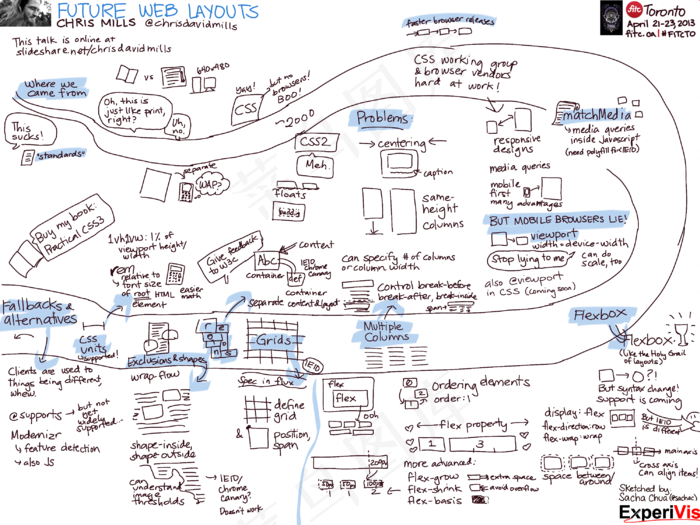 FUTURE WEB LAYOUTS
CHRIS MILLS @chrisdavidmills
This talk is online at
slideshare.net/chrisdavidmills
fitc Toronto
April 21-23, 2013
fitc.ca | #FITCTO
Where we
came from
vs
640x480
Oh, this is
just like print,
right?
Uh,
no.
Yay!
CSS
but no
browsers!
BOO!
~2000
This
sucks!
"standards"
CSS2
Meh.
separate
WAP?
floats
faster browser releases
CSS working group
& browser vendors
hard at work!
Problems
centering
caption
same-
height
columns
responsive
designs
media queries
mobile
first
many advantages
matchMedia
media queries
inside Javascript
(need polyfill for IE10)
BUT MOBILE BROWSERS LIE!
viewport
width=device-width
Stop lying to me
can do
scale, too
also @viewport
in CSS (coming soon)
Buy my book:
Practical CSS3
1vh,1vw: 1% of
viewport height/
width
rem
relative to
font size
of root HTML
element
easier
math
Give feedback
to W3C
content
Abc
def
container
IE10
Chrome
canary
container
separate content & layout
can specify # of columns
or column width
Control break-before
break-after, break-inside
span
Fallbacks &
alternatives
CSS
units
supported!
Exclusions & shapes
Grids
IE10
Multiple
Columns
Flexbox
Clients are used to
things being different,
whew.
@supports
but not
yet
widely
supported...
Modernizr
feature detection
also JS
wrap-flow
shape-inside,
shape outside
can
understand
image
thresholds
IE10/
chrome
canary?
Doesn't work
spec in flux
define
grid
&
position,
span
flex
flex
ooh
ordering elements
order:1
flex property
1
3
more advanced:
flex-grow
extra space
flex-shrink
avoid overflow
flex-basis
Flexbox:
(like the Holy Grail
of layouts)
?!
But syntax change!
support is coming
But IE10
is different
display: flex
flex-direction:row
flex-wrap:wrap
main axis
cross axis
Can align items!
space between/
around
Sketched by
Sacha Chua (@sachac)
ExperiVis